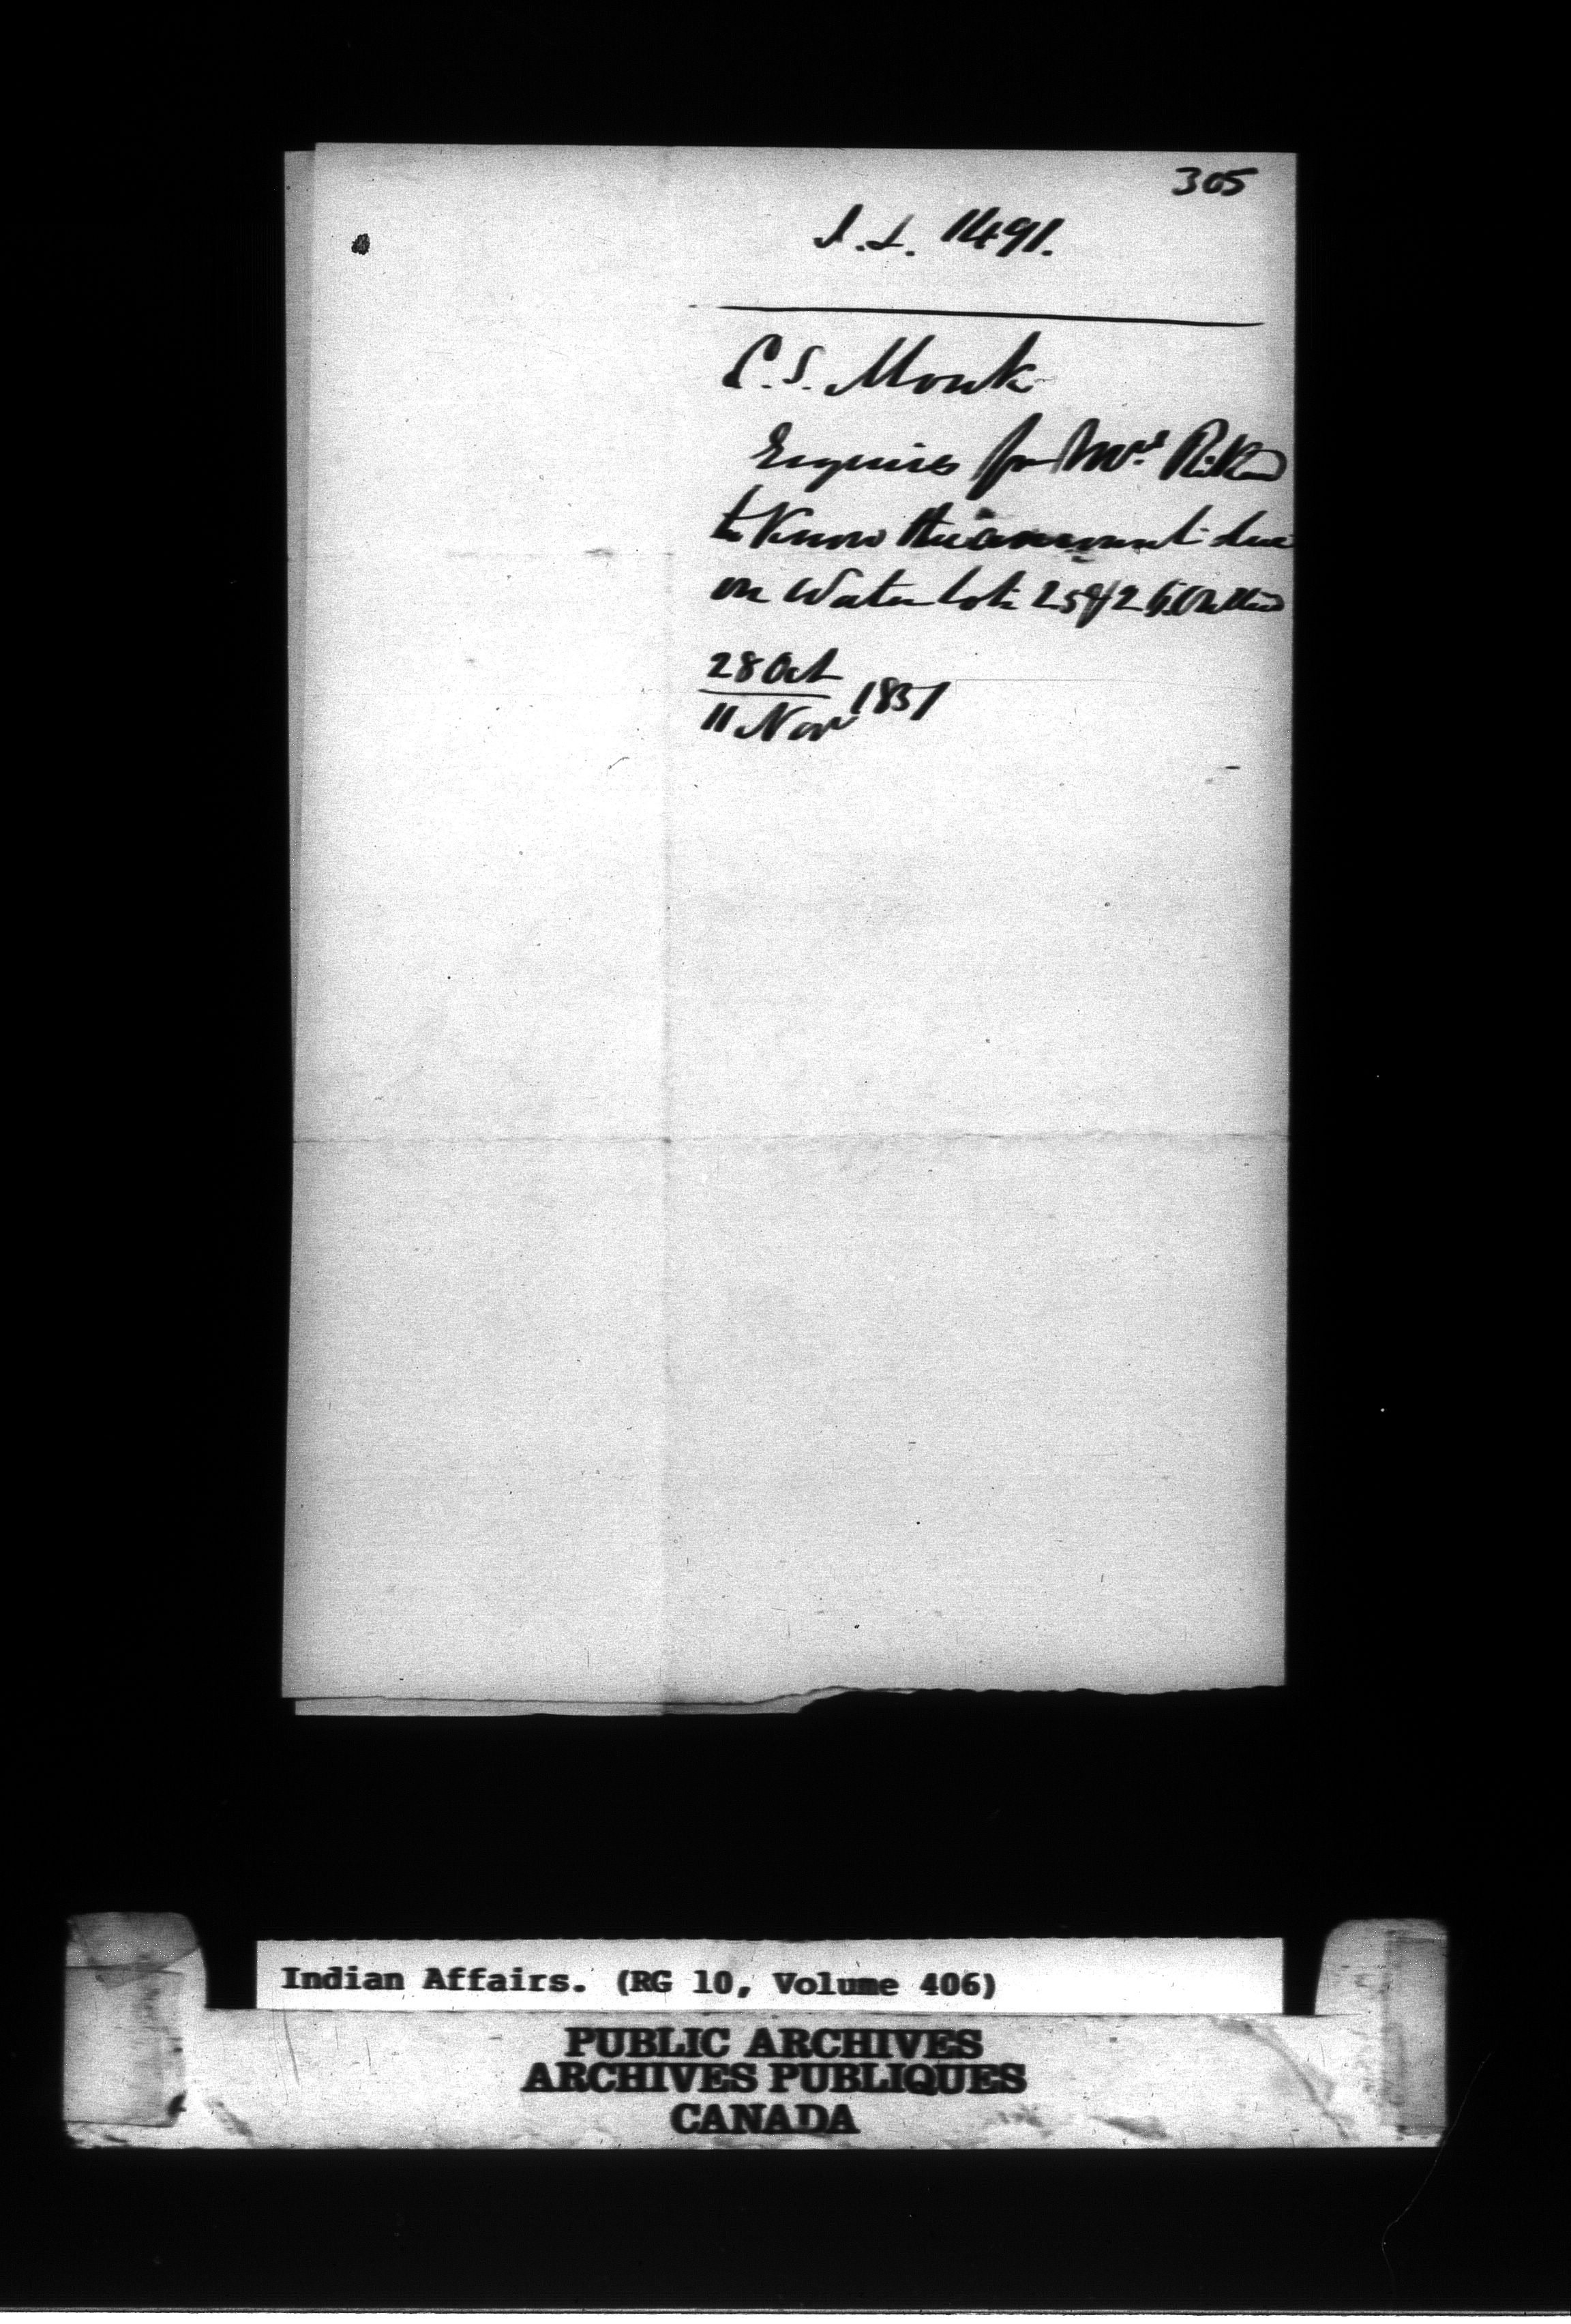 305
I.L. 1491.
C.S. Monk
Enquires for Mrs
to know the amount due
on Water lots 25 & 26
28 Oct
11 Nov 1857
Indian Affairs. (RG 10, Volume 406)
PUBLIC ARCHIVES
ARCHIVES PUBLIQUES
CANADA